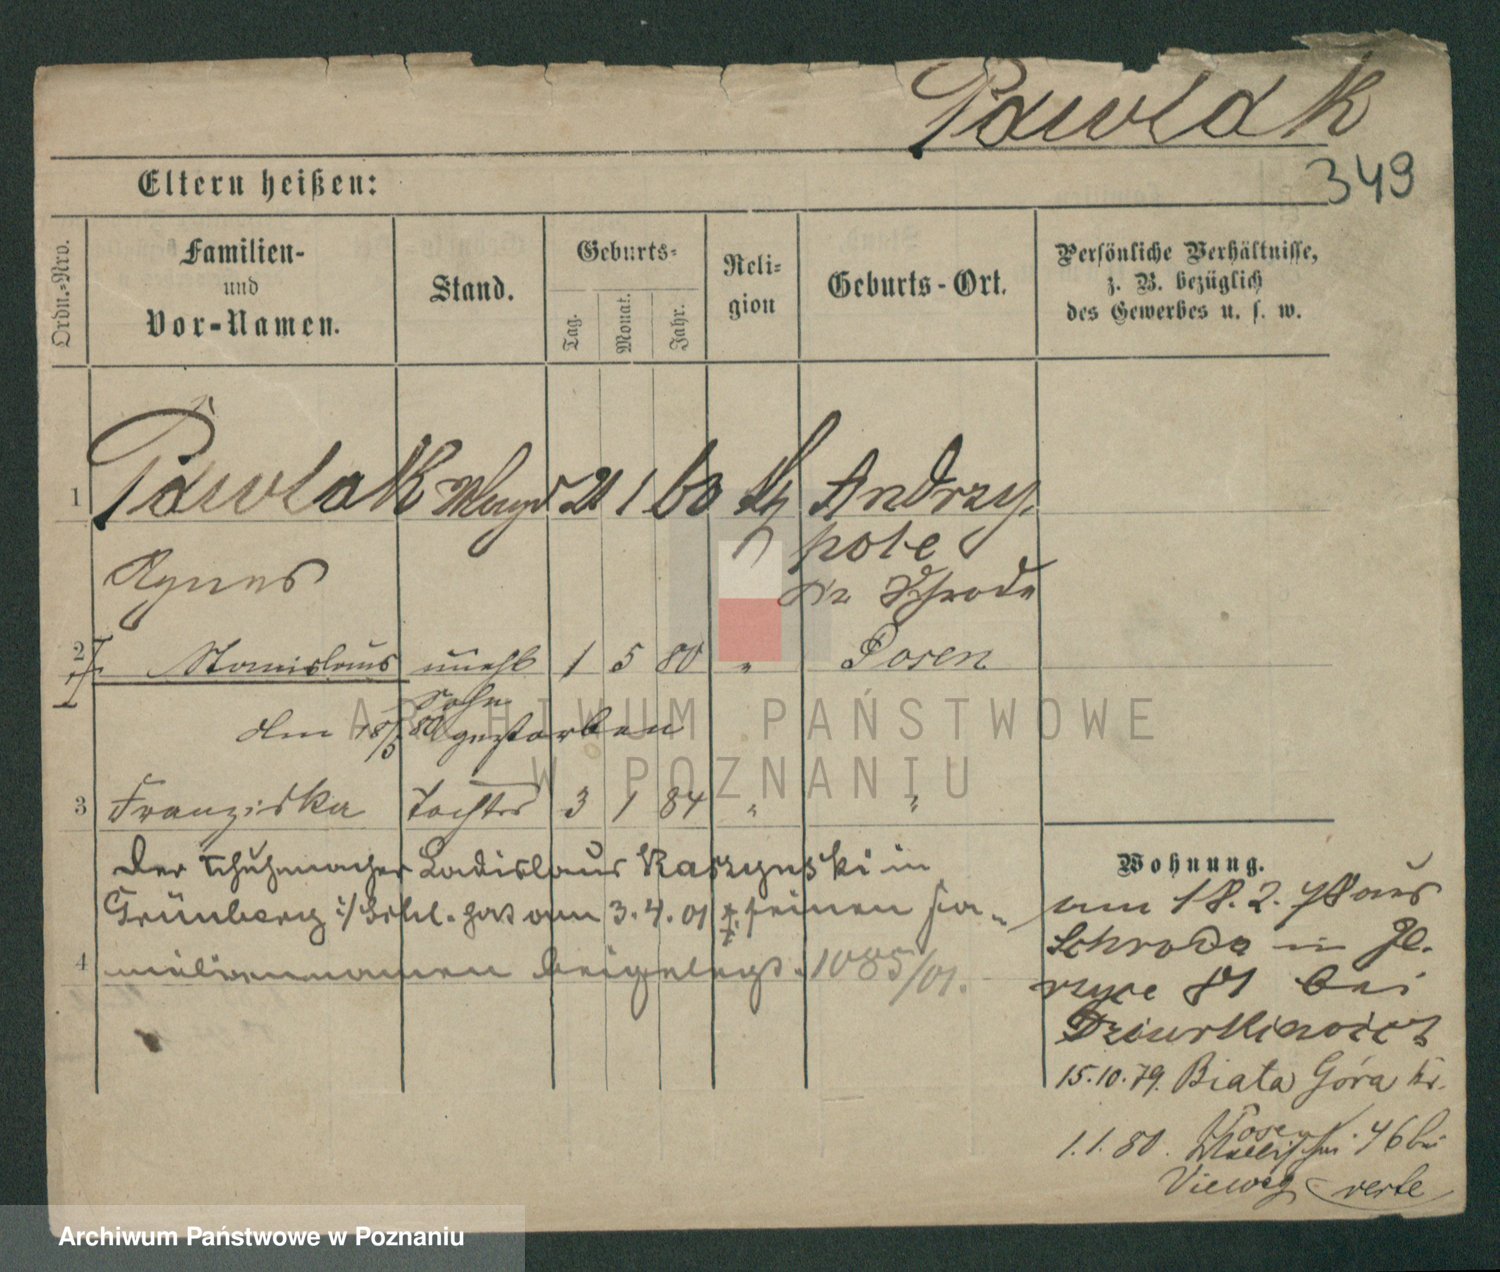 Pawlak
349
Eltern heißen:
Ordn.-Nro.
Familien-
und
Vor-Namen.
Stand.
Geburts-
Tag.
Monat.
Jahr.
Reli-
gion
Geburts-Ort.
Persönliche Verhältnisse,
z. B. bezüglich
des Gewerbes u. s. w.
1 Pawlak Magd 21 1 60 Andrzy
Agnes pole
Kr Schroda
2 Stanislaus unehl 1 5 80 " Posen
Sohn
den 18/5 80 gestorben
3 Franziska Tochter 3 1 84 " "
Der Schuhmacher Ladislaus Kaszynski in
Grünberg i/Schl. hat am 3.4.01 ‡ seinen Fa-
4 miliennamen beigelegt. 1085/01.
Wohnung.
am 18.2.78 aus
Schroda in Je-
rzyce 81 bei
Dziurkiewicz
15.10.79. Biała Góra Kr.
Posen
1.1.80. 46 bei
Vieweg verte
ARCHIWUM PAŃSTWOWE
W POZNANIU
Archiwum Państwowe w Poznaniu